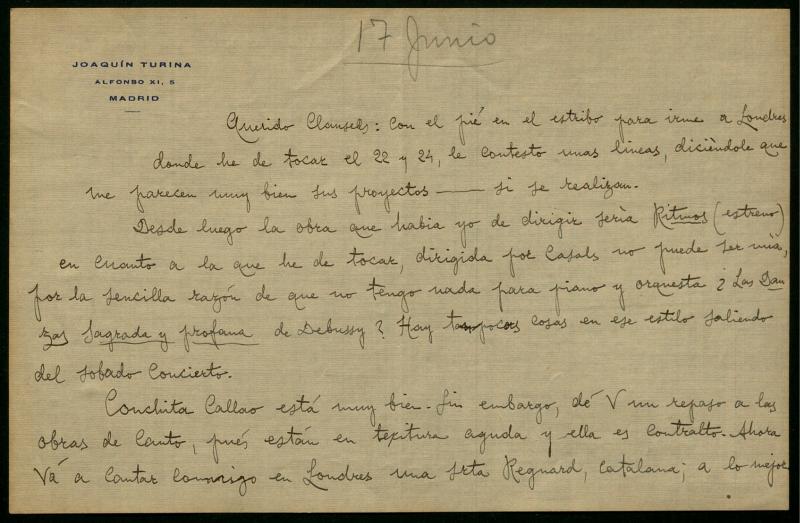 17 Junio
JOAQUÍN TURINA
ALFONSO XI, 5
MADRID
Querido Clausells: Con el pié en el estribo para irme a Londres
donde he de tocar el 22 y 24, le contesto unas líneas, diciéndole que
me parecen muy bien sus proyectos — si se realizan.
Desde luego la obra que habia yo de dirigir sería Ritmos (estreno)
en cuanto a la que he de tocar, dirigida por Casals no puede ser mía,
por la sencilla razón de que no tengo nada para piano y orquesta ¿Las Dan
zas sagrada y profana de Debussy? Hay tan pocas cosas en ese estilo saliendo
del sobado Concierto.
Conchita Callao está muy bien. Sin embargo, dé V un repaso a las
obras de Canto, pués están en texitura aguda y ella es contralto. Ahora
Vá a cantar conmigo en Londres una srta Regnard, catalana; a lo mejor